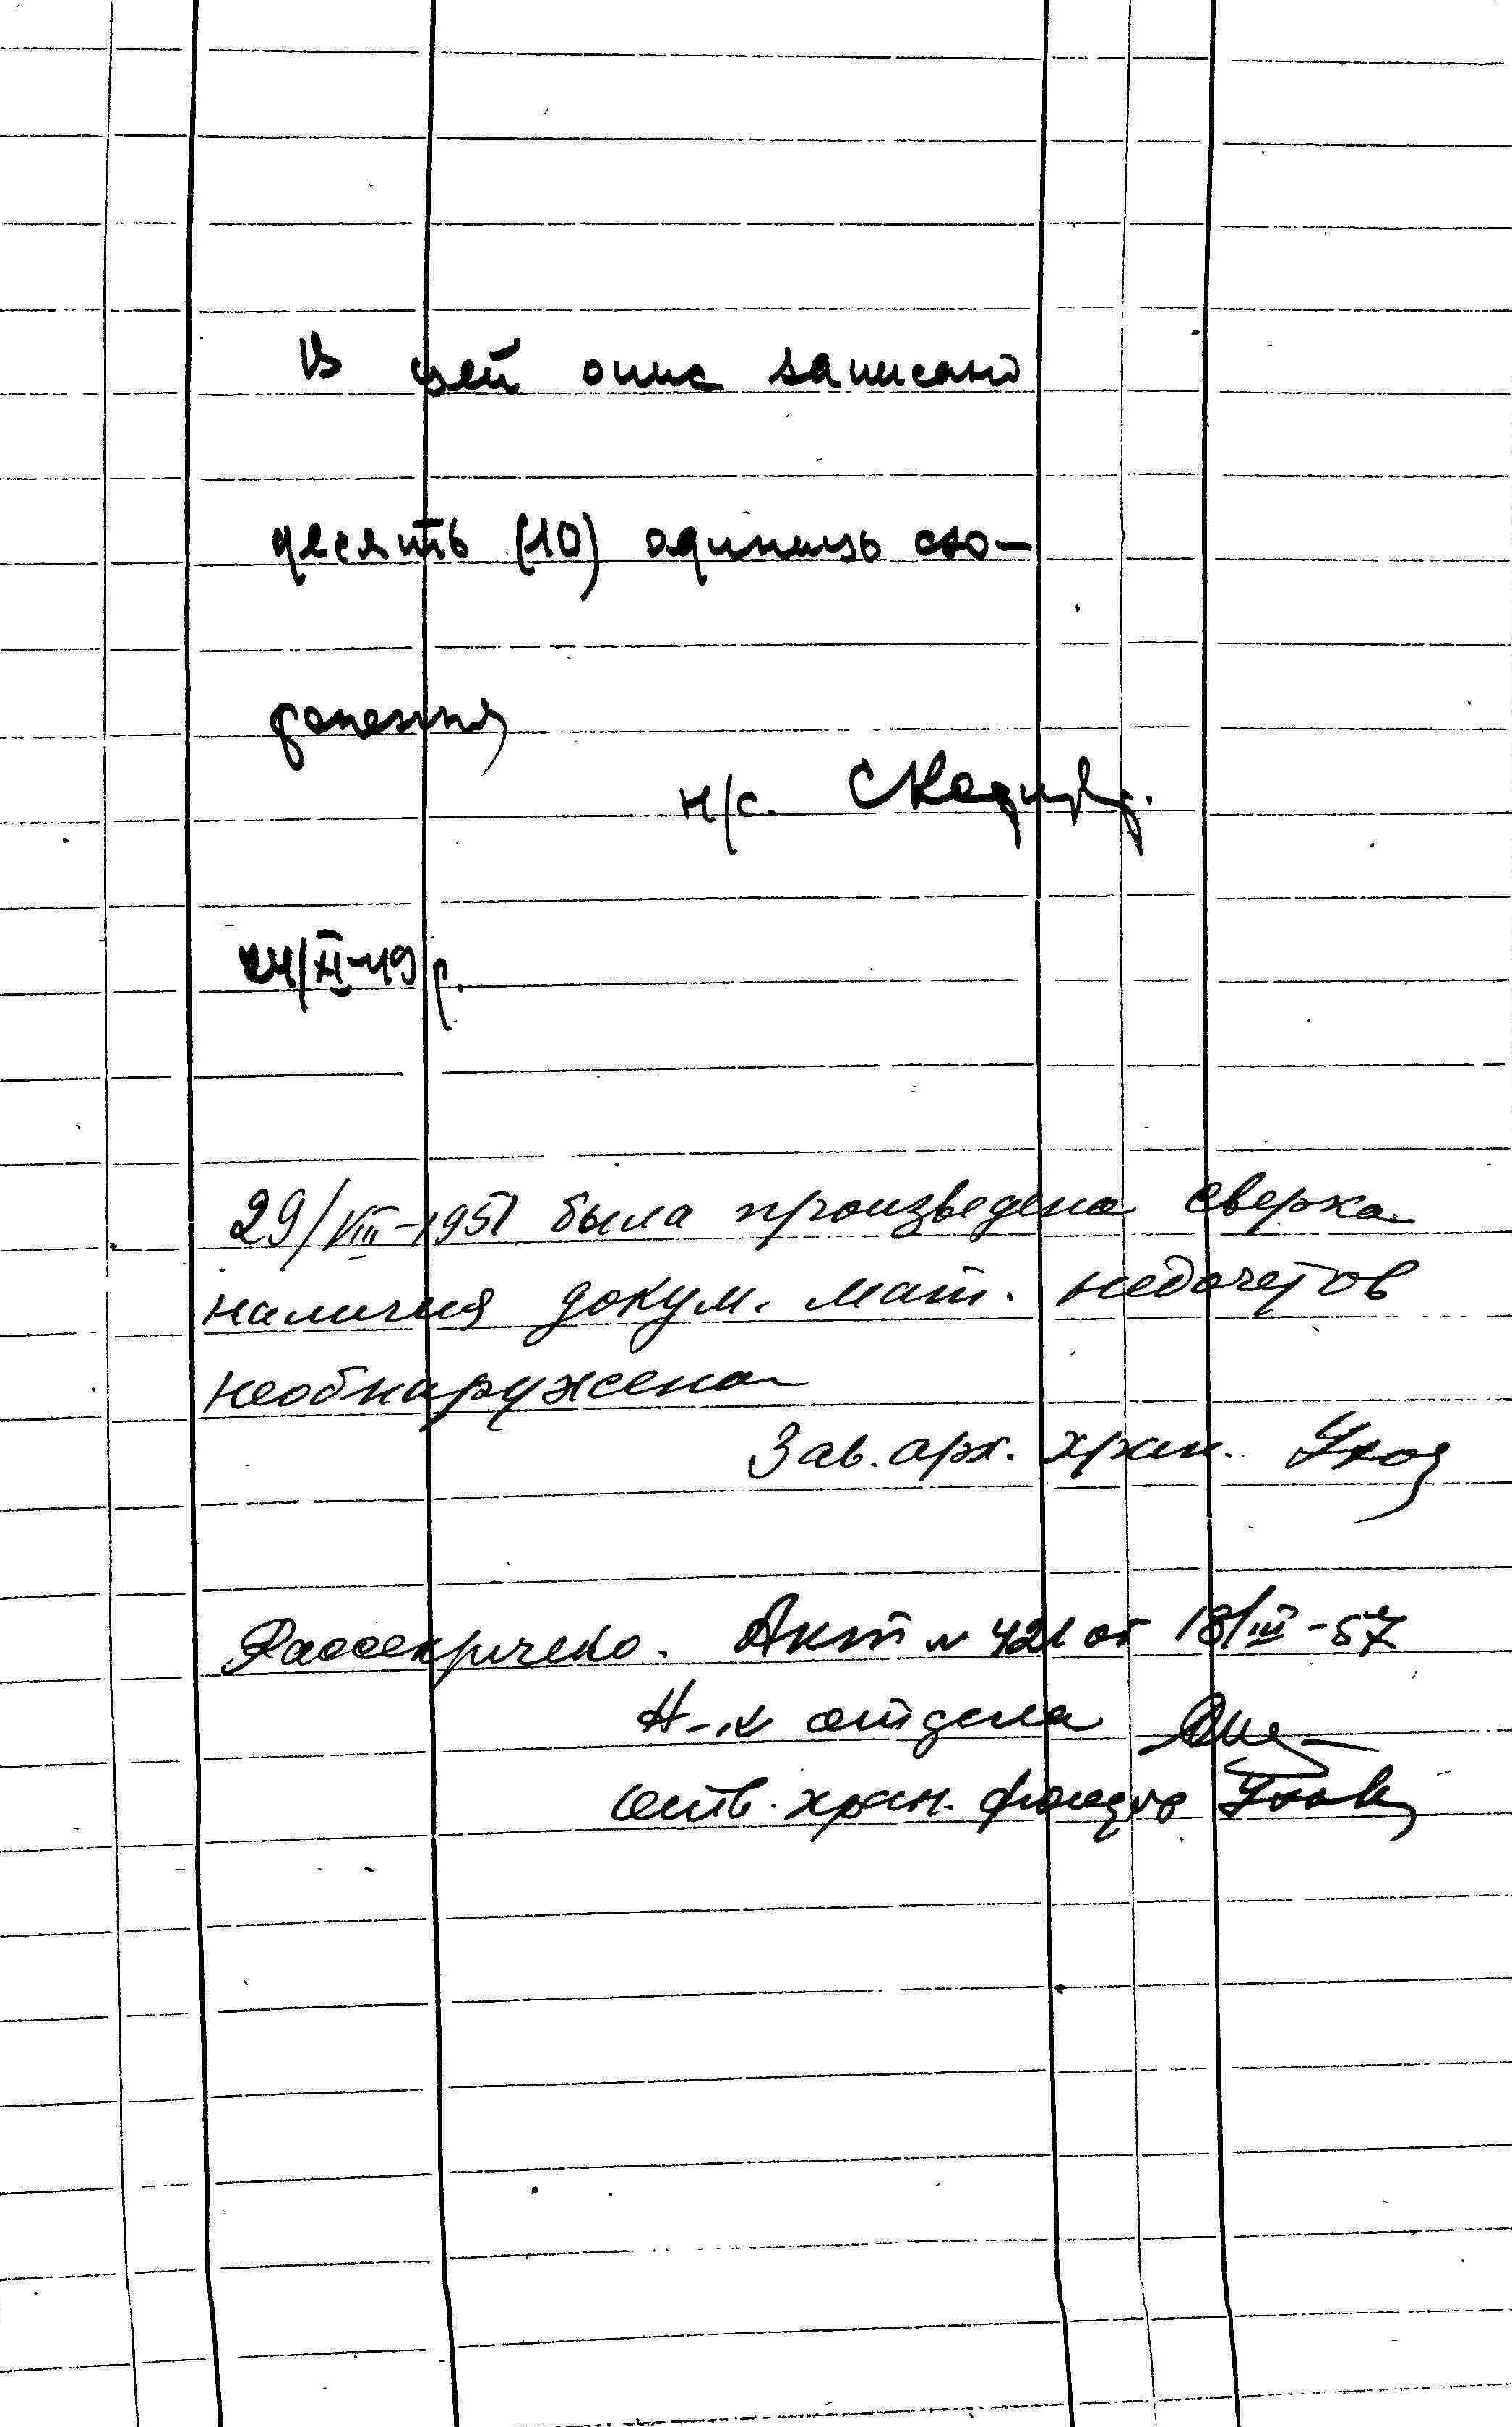 В цей опис записано
десять (10) одиниць схо-
вання
н/с.
24/XI-49 р.
29/VIII-1951 была произведена сверка
наличия докум. мат. недочетов
необнаружено
Зав. арх. хран.
Рассекречено. Акт N 421 от 18/III-57
Н-к отдела
Отв. хран. фондов